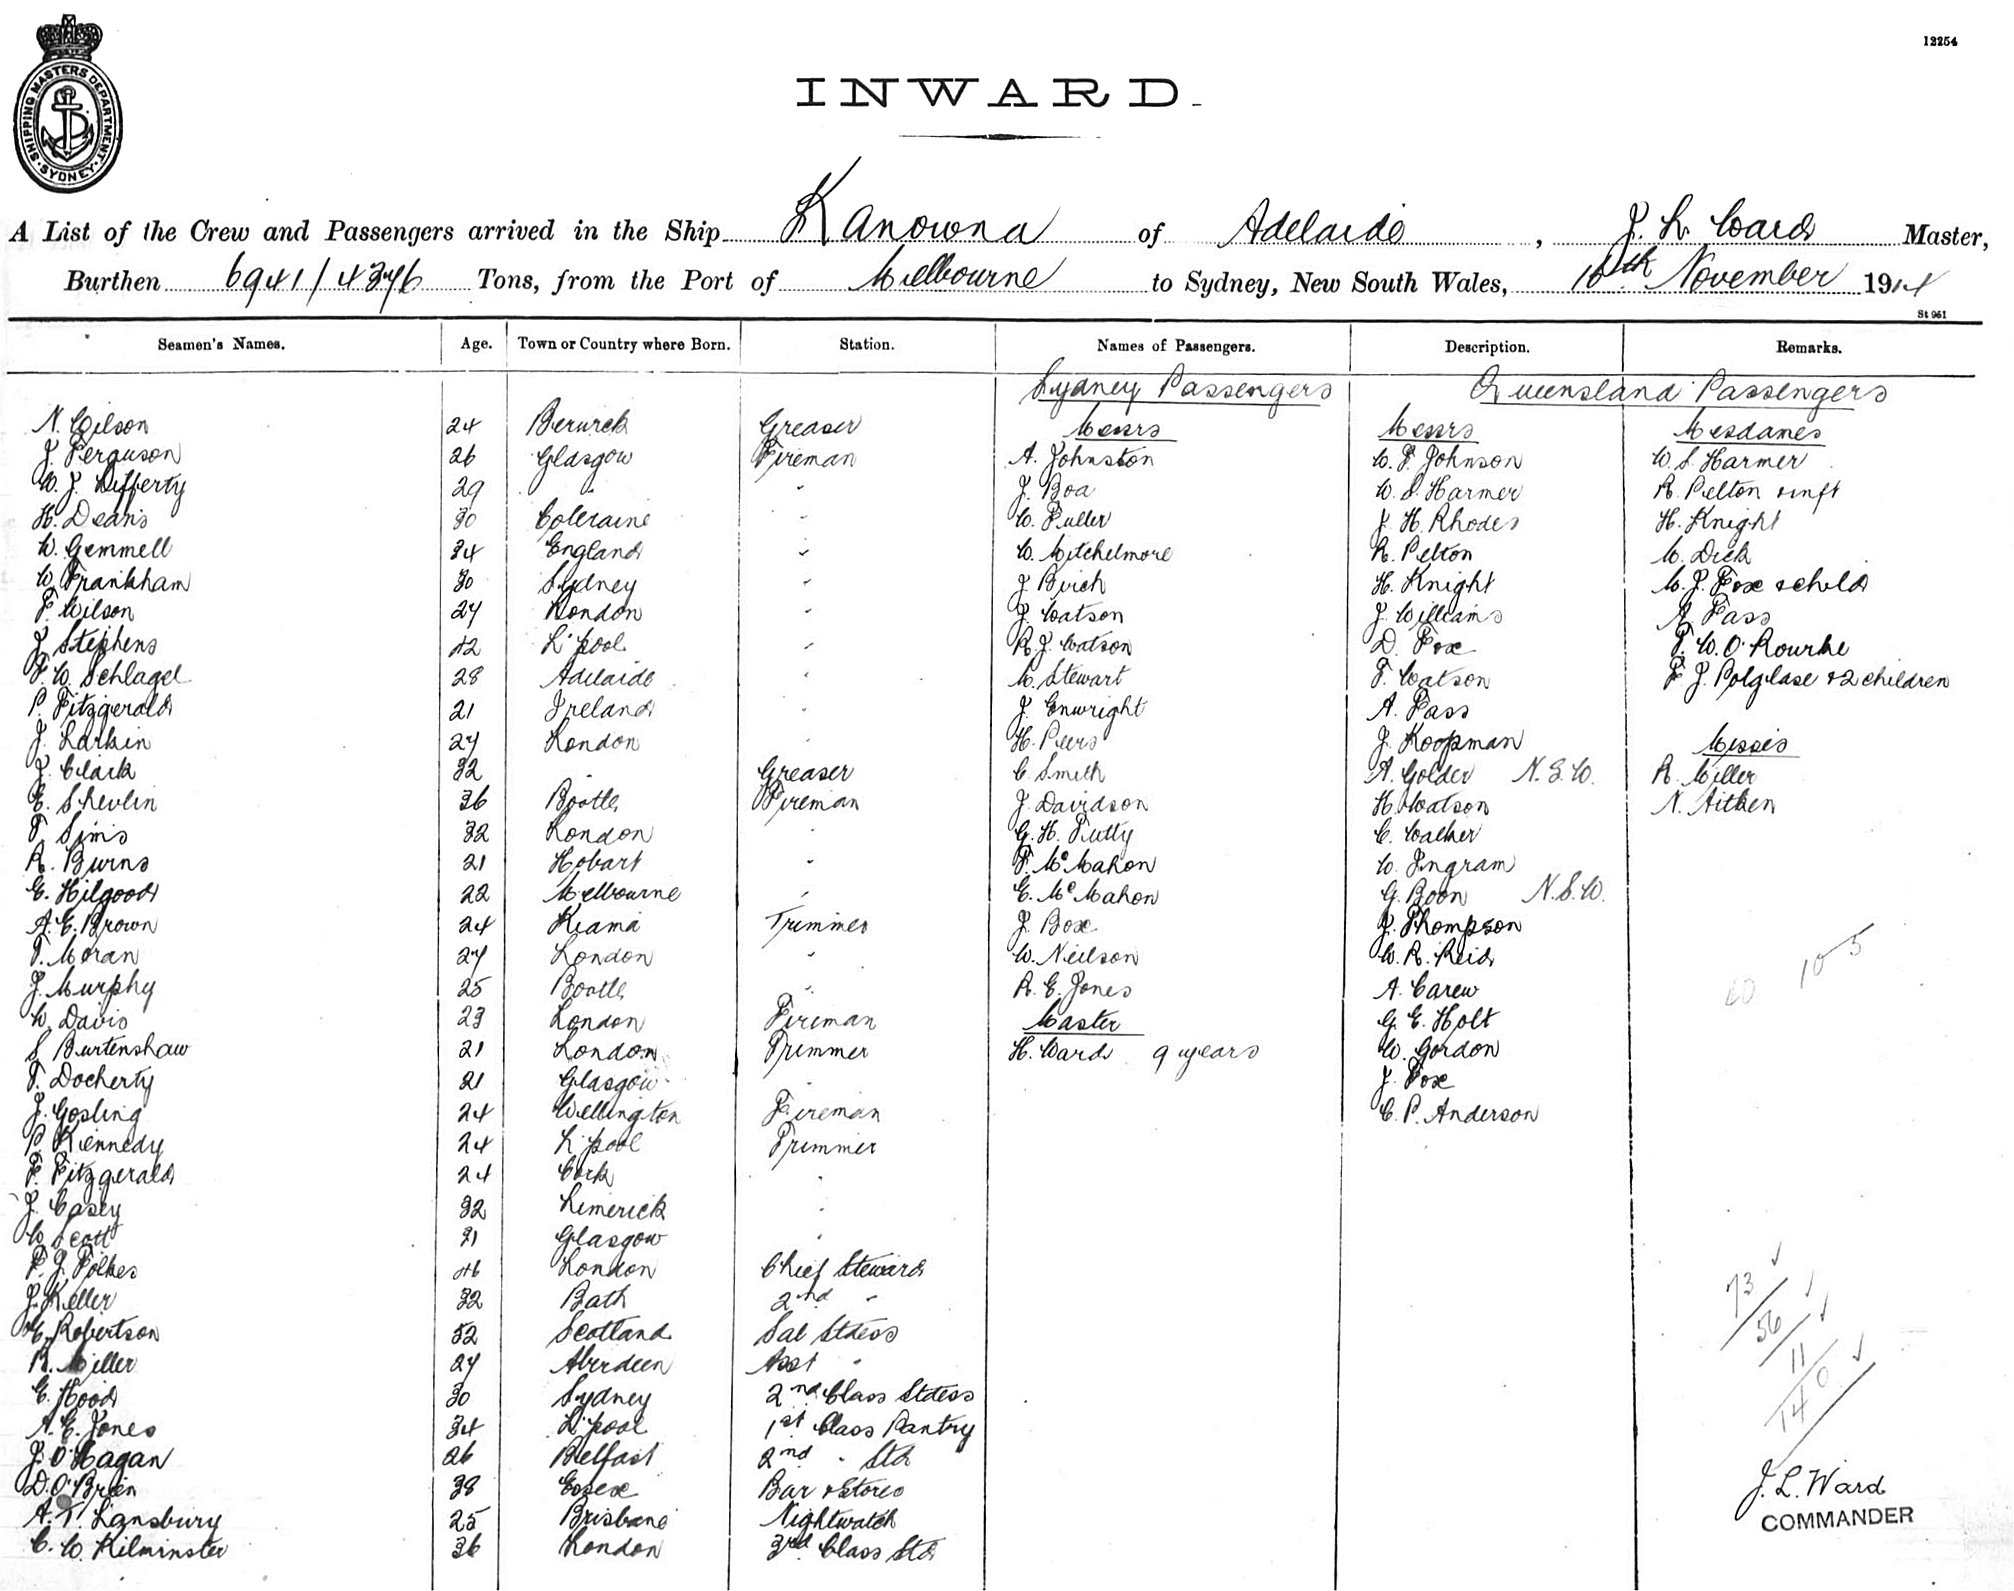 SHIPPING MASTERS DEPARTMENT. SYDNEY
12254
INWARD.
A List of the Crew and Passengers arrived in the Ship Kanowna of Adelaide, J. L. Ward Master,
Burthen 6941/4376 Tons, from the Port of Melbourne to Sydney, New South Wales, 10th November 1914
St 961
Seamen's Names. Age. Town or Country where Born. Station. Names of Passengers. Description. Remarks.
Sydney Passengers Queensland Passengers
N. Wilson 24 Berwick Greaser Messrs Messrs Mesdames
J. Ferguson 26 Glasgow Fireman A. Johnston W. F. Johnson W. S. Harmer
W. J. Lifferty 29 " " J. Boa W. S. Harmer R. Pelton & inft
H. Deans 30 Coleraine " W. Fuller J. H. Rhodes H. Knight
W. Gemmell 34 England " W. Mitchelmore R. Pelton M. Dick
W. Frankham 30 Sydney " J. Birch H. Knight M. J. Fox & child
F. Wilson 27 London " J. Watson J. Williams A. Pass
J. Stephens 42 L'pool " R. J. Watson D. Fox T. W. O'Rourke
F. W. Schlagel 28 Adelaide " M. Stewart F. Watson F. J. Polglase & 2 children
P. Fitzgerald 21 Ireland " J. Enwright A. Pass
J. Larkin 27 London " H. Peers J. Koopman Misses
J. Clark 32 " Greaser C. Smith A. Golder N.S.W. R. Miller
E. Shevlin 36 Bootle Fireman J. Davidson H. Watson N. Aitken
T. Sims 32 London " G. H. Tutty C. Walker
R. Burns 21 Hobart " F. McMahon W. Ingram
E. Hilgood 22 Melbourne " E. McMahon G. Boon N.S.W.
A. E. Brown 24 Kiama Trimmer J. Box J. Thompson
T. Moran 27 London " W. Neilson W. R. Reid
J. Murphy 25 Bootle " R. E. Jones A. Carew
W. Davis 23 London Fireman Master G. E. Holt
S. Burtenshaw 21 London Trimmer H. Ward 9 years W. Gordon
T. Docherty 21 Glasgow J. Fox
J. Gosling 24 Wellington Fireman C. P. Anderson
P. Kennedy 24 L'pool Trimmer
F. Fitzgerald 24 Cork "
J. Casey 32 Limerick "
W. Scott 31 Glasgow "
F. J. Folkes 46 London Chief Steward
J. Keller 32 Bath 2nd "
Robertson 52 Scotland Sal Stdess
R. Miller 27 Aberdeen Asst "
E. Hood 30 Sydney 2nd Class Stdess
A. E. Jones 34 L'pool 1st Class Pantry
J. O'Hagan 26 Belfast 2nd " Std
D. O'Brien 38 Essex Bar & Stores
A. T. Lansbury 25 Brisbane Nightwatch
C. W. Kilminster 36 London 3rd Class Std
105
73
56
11
140
J. L. Ward
COMMANDER